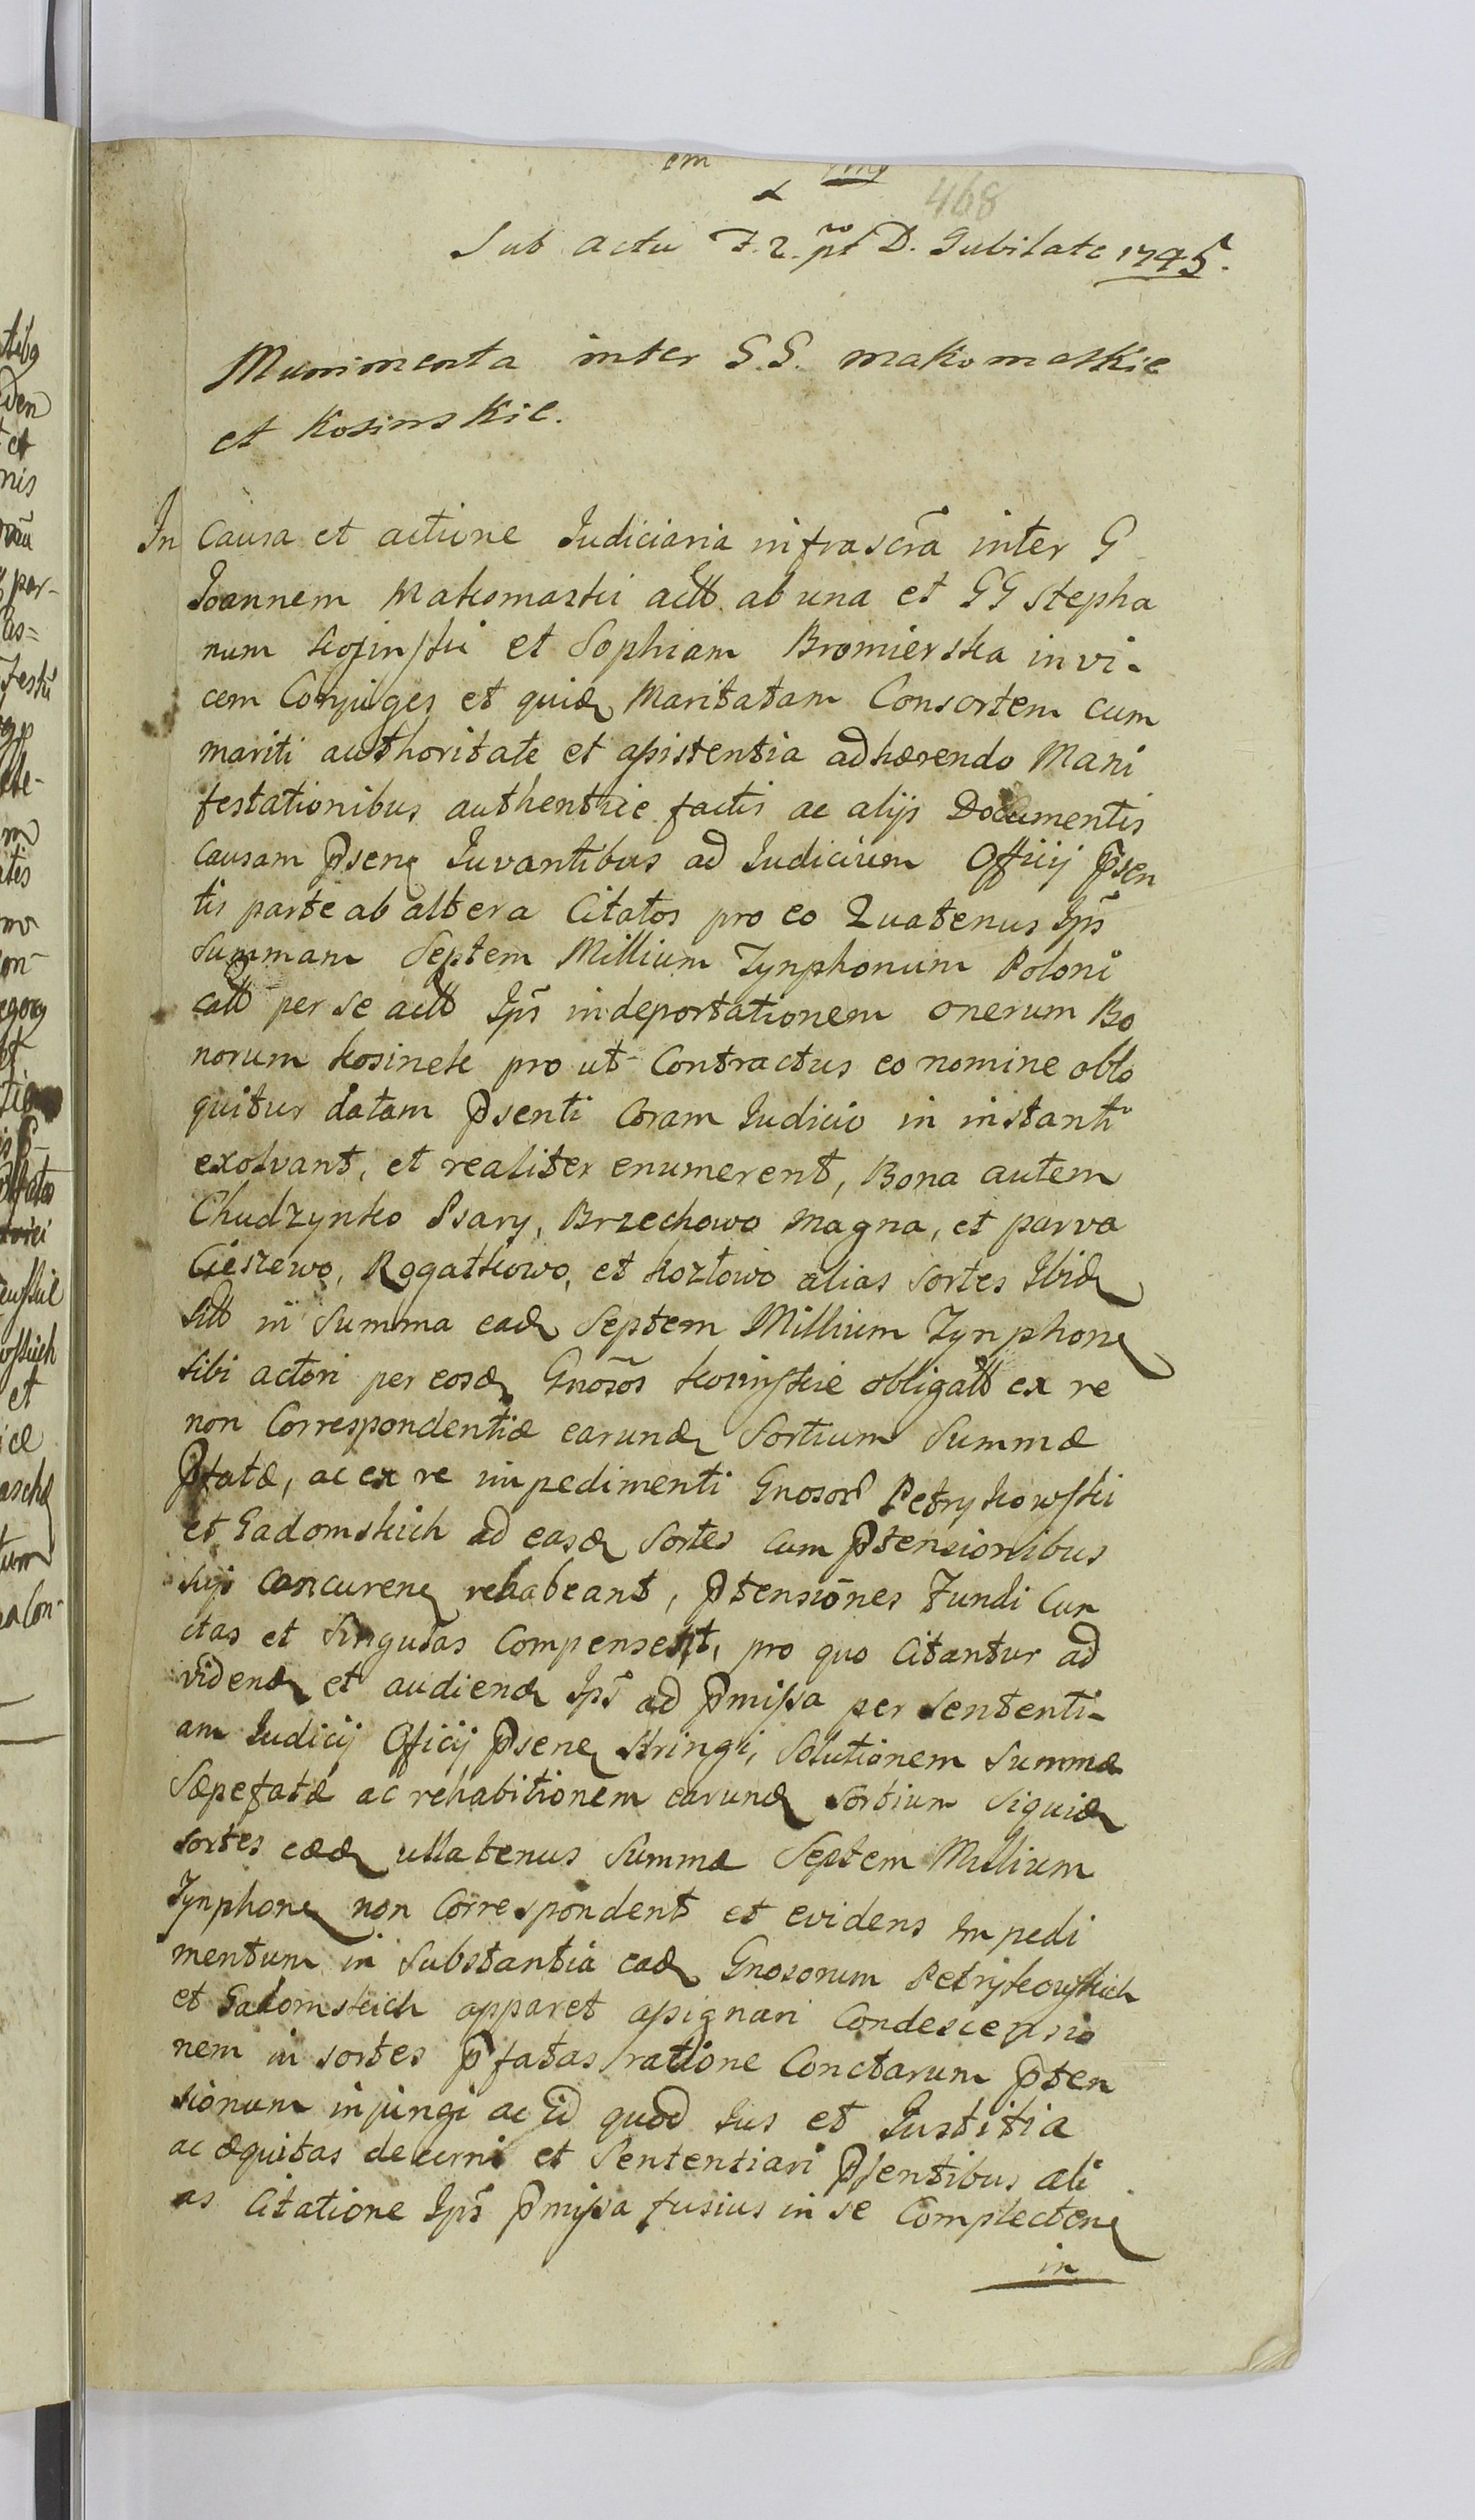 468
Sub actu F. 2. pt D. Jubilate 1745.
Munimenta inter G.G. Makomaskie
et Kosinskie.
In Causa et actione Judiciaria infrascrã inter G
Joannem Makomaski actt. ab una et GG Stepha
num Kosinski et Sophiam Bromierska invi-
cem Conjuges et quid. Maritatam Consortem cum
mariti authoritate et assistentia adhærendo Mani
festationibus authentice factis ac alijs Documentis
causam Psen. Juvantibus ad Judicium Officij Psen
tis parte ab altera Citatos pro eo Quatenus Ips̃
Summam Septem Millium Tynphonum Poloni
catt per se actt Ips̃ in deportationem onerum Bo
norum Kosinek pro ut Contractus eo nomine oblo
quitur datam Psenti Coram Judicio in instanti
exolvant, et realiter enumerent, Bona autem
Chudzynko Psary, Brzechowo magna, et parva
Cieszewo, Rogatkowo, et Kozłowo alias Sortes Ibid.
sitt in Summa ead. Septem Millium Tynphon.
sibi actori per eosd. Gnosõs Kosinskie obligatt ex re
non Correspondentiæ earund. Sortium Summæ
Pfatæ, ac ex re impedimenti Gnosor. Petrykowski
et Gadomskich ad easd. Sortes cum Ptensionibus
suis concuren. rehabeant, Ptensiones Fundi Cun
ctas et Singulas Compensent, pro quo Citantur ad
vidend. et audiend. Ips̃ ad Pmissa per Sententi-
am Judicij Officij Psen. stringi, Solutionem Summæ
Sæpefatæ ac rehabitionem earund. Sortium Siquid.
Sortes eæd. ullatenus Summæ Septem Millium
Tynphon. non Correspondent et evidens Impedi
mentum in Substantia ead. Gnosorum Petrykowskich
et Gadomskich apparet assignari Condescensio
nem in sortes Pfatas ratione Conctarum Pten
sionum injungi ac id quod Jus et Justitia
ac æquitas decerni et Sententiari Psentibus ali
as Citatione Ips̃ Pmissa fusius in se Complecten.
in